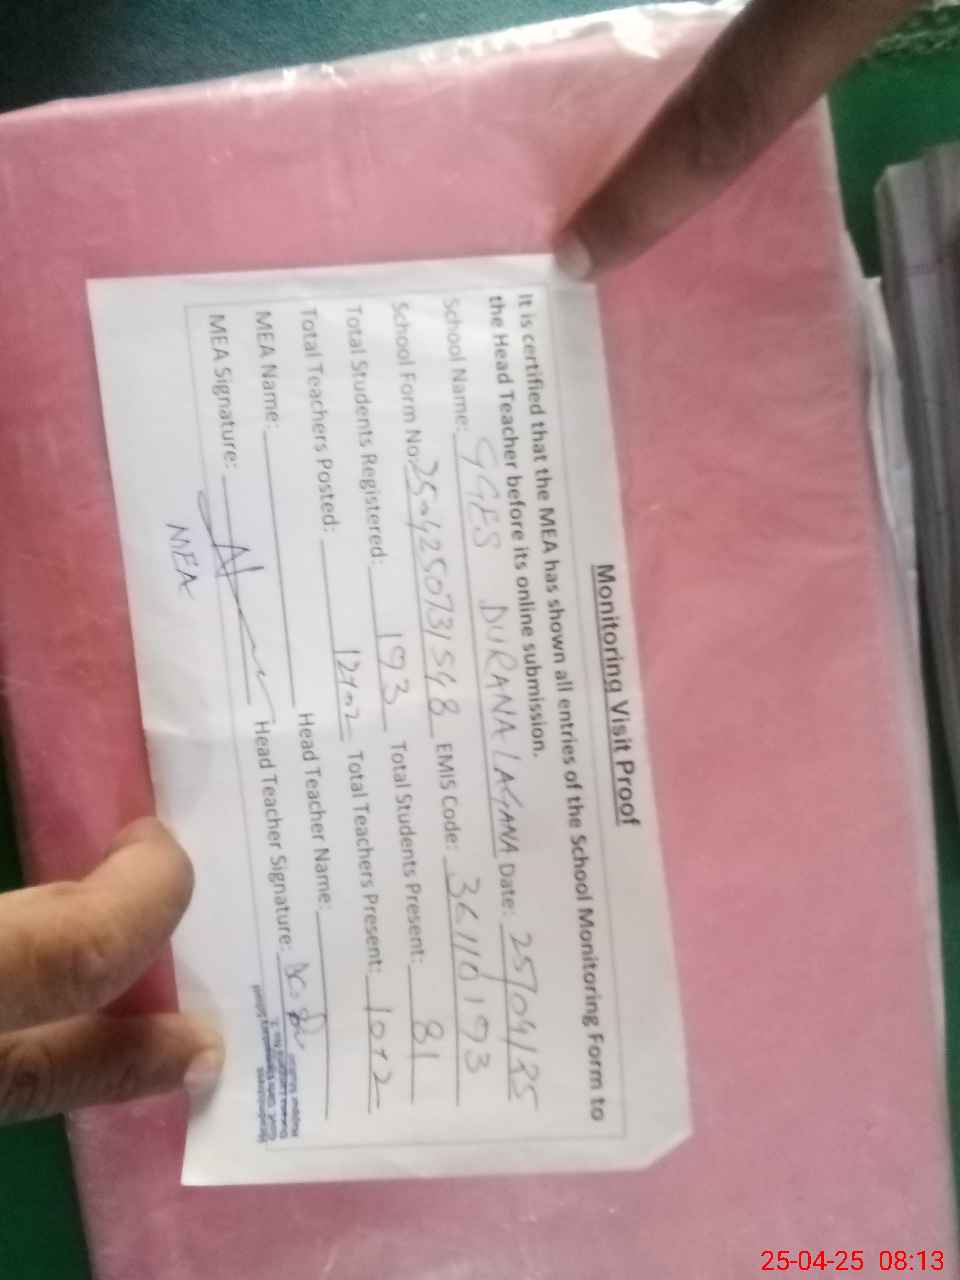 Monitoring Visit Proof
It is certified that the MEA has shown all entries of the School Monitoring Form to
the Head Teacher before its online submission.
School Name: GGES DURANA LAGANA Date: 25/04/25
School Form No. 2504250731548 EMIS Code: 36110193
Total Students Registered: 193 Total Students Present: 81
Total Teachers Posted: 12+02 Total Teachers Present: 10+2
MEA Name: Head Teacher Name:
MEA Signature: Head Teacher Signature:
MEA
25-04-25 08:13